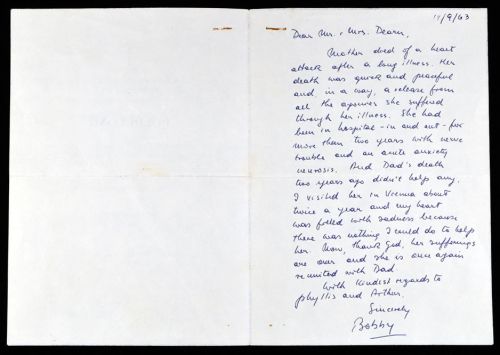 19/9/63
Dear Mr. & Mrs. Dearn,
Mother died of a heart
attack after a long illness. Her
death was quick and peaceful
and, in a way, a release from
all the agonies she suffered
through her illness. She had
been in hospital - in and out - for
more than two years with nerve
trouble and an acute anxiety
neurosis. And Dad's death
two years ago didn't help any.
I visited her in Vienna about
twice a year and my heart
was filled with sadness because
there was nothing I could do to help
her. Now, thank God, her sufferings
are over and she is once again
reunited with Dad.
With kindest regards to
Phyllis and Arthur.
Sincerely
Bobby